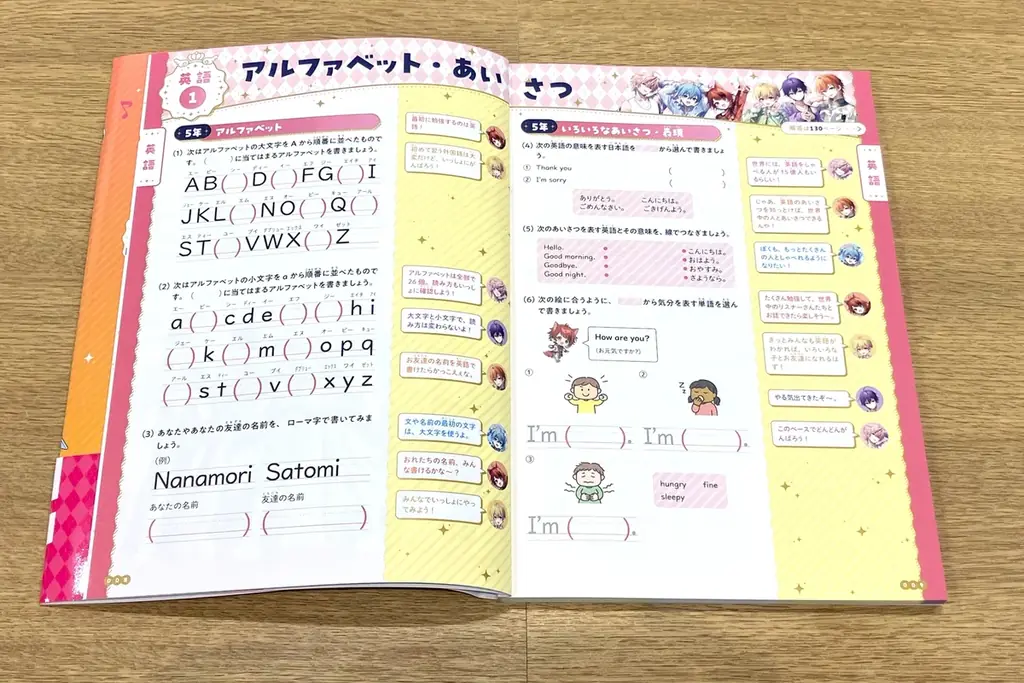 英語
1
アルファベット・あいさつ
英語
5年 アルファベット
(1) 次はアルファベットの大文字をAから順番に並べたもので
す。( )に当てはまるアルファベットを書きましょう。
AB( )D( )FG( )I
JKL( )NO( )Q( )
ST( )VWX( )Z
(2) 次はアルファベットの小文字をaから順番に並べたもので
す。( )に当てはまるアルファベットを書きましょう。
a( )cde( )( )hi
( )k( )m( )opq
( )st( )v( )xyz
(3) あなたやあなたの友達の名前を、ローマ字で書いてみま
しょう。
(例)
Nanamori Satomi
あなたの名前 友達の名前
( ) ( )
最初に勉強するのは英
語!
初めて習う外国語は大
変だけど、いっしょにが
んばろう!
アルファベットは全部で
26個。読み方もいっし
ょに確認しよう!
大文字と小文字で、読
み方は変わらないよ!
お友達の名前を英語で
書けたらかっこえぇな。
文や名前の最初の文字
は、大文字を使うよ。
おれたちの名前、みん
な書けるかな〜?
みんなでいっしょにやっ
てみよう!
解答は130ページ
英語
5年 いろいろなあいさつ・表現
(4) 次の英語の意味を表す日本語を から選んで書きましょ
う。
① Thank you ( )
② I'm sorry ( )
ありがとう。 こんにちは。
ごめんなさい。 ごきげんよう。
(5) 次のあいさつを表す英語とその意味を、線でつなぎましょう。
Hello. ● ● こんにちは。
Good morning. ● ● おはよう。
Goodbye. ● ● おやすみ。
Good night. ● ● さようなら。
(6) 次の絵に合うように、 から気分を表す単語を選ん
で書きましょう。
How are you?
(お元気ですか?)
① ②
z z
I'm ( )。 I'm ( )。
③
hungry fine
sleepy
I'm ( )。
世界には、英語をしゃ
べる人が15億人もい
るらしい!
じゃあ、英語のあいさ
つを知っとけば、世界
中の人とあいさつできる
んや!
ぼくも、もっとたくさん
の人としゃべれるように
なりたい!
たくさん勉強して、世界
中のリスナーさんたちと
お話できたら楽しそう〜。
きっとみんなも英語が
わかれば、いろいろな
子とお友達になれるは
ず!
やる気出てきたぞ〜。
このペースでどんどんが
んばろう!